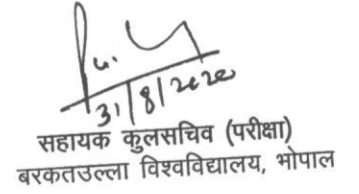 31/8/2020
सहायक कुलसचिव (परीक्षा)
बरकतउल्ला विश्वविद्यालय, भोपाल